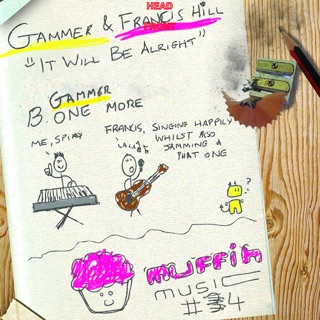 HEAD
FRONT
GAMMER & FRANCIS HILL
"IT WILL BE ALRIGHT"
GAMMER
B. ONE MORE
ME, SPIKEY
FRANCIS, SINGING HAPPILY
WHILST ALSO
JAMMING A
PHAT ONE
LALA
?
muffin
music
#34